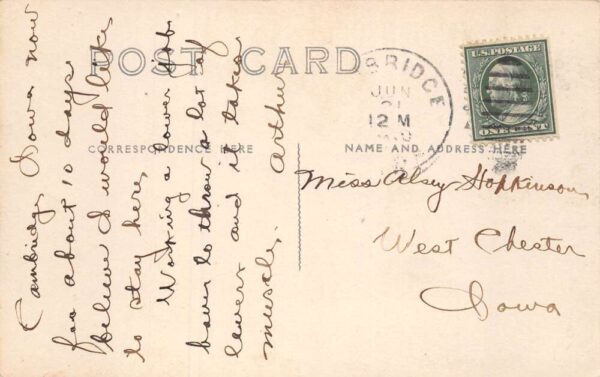 POST CARD
CORRESPONDENCE HERE
NAME AND ADDRESS HERE
BRIDGE
JUN
21
12 M
U.S. POSTAGE
ONE CENT
Cambridge Iowa now
for about 10 days
believe I would like
to stay here.
Working a tower job
have to throw a lot of
levers and it takes
muscle. Arthur
Miss Alsey Hopkinson
West Chester
Iowa